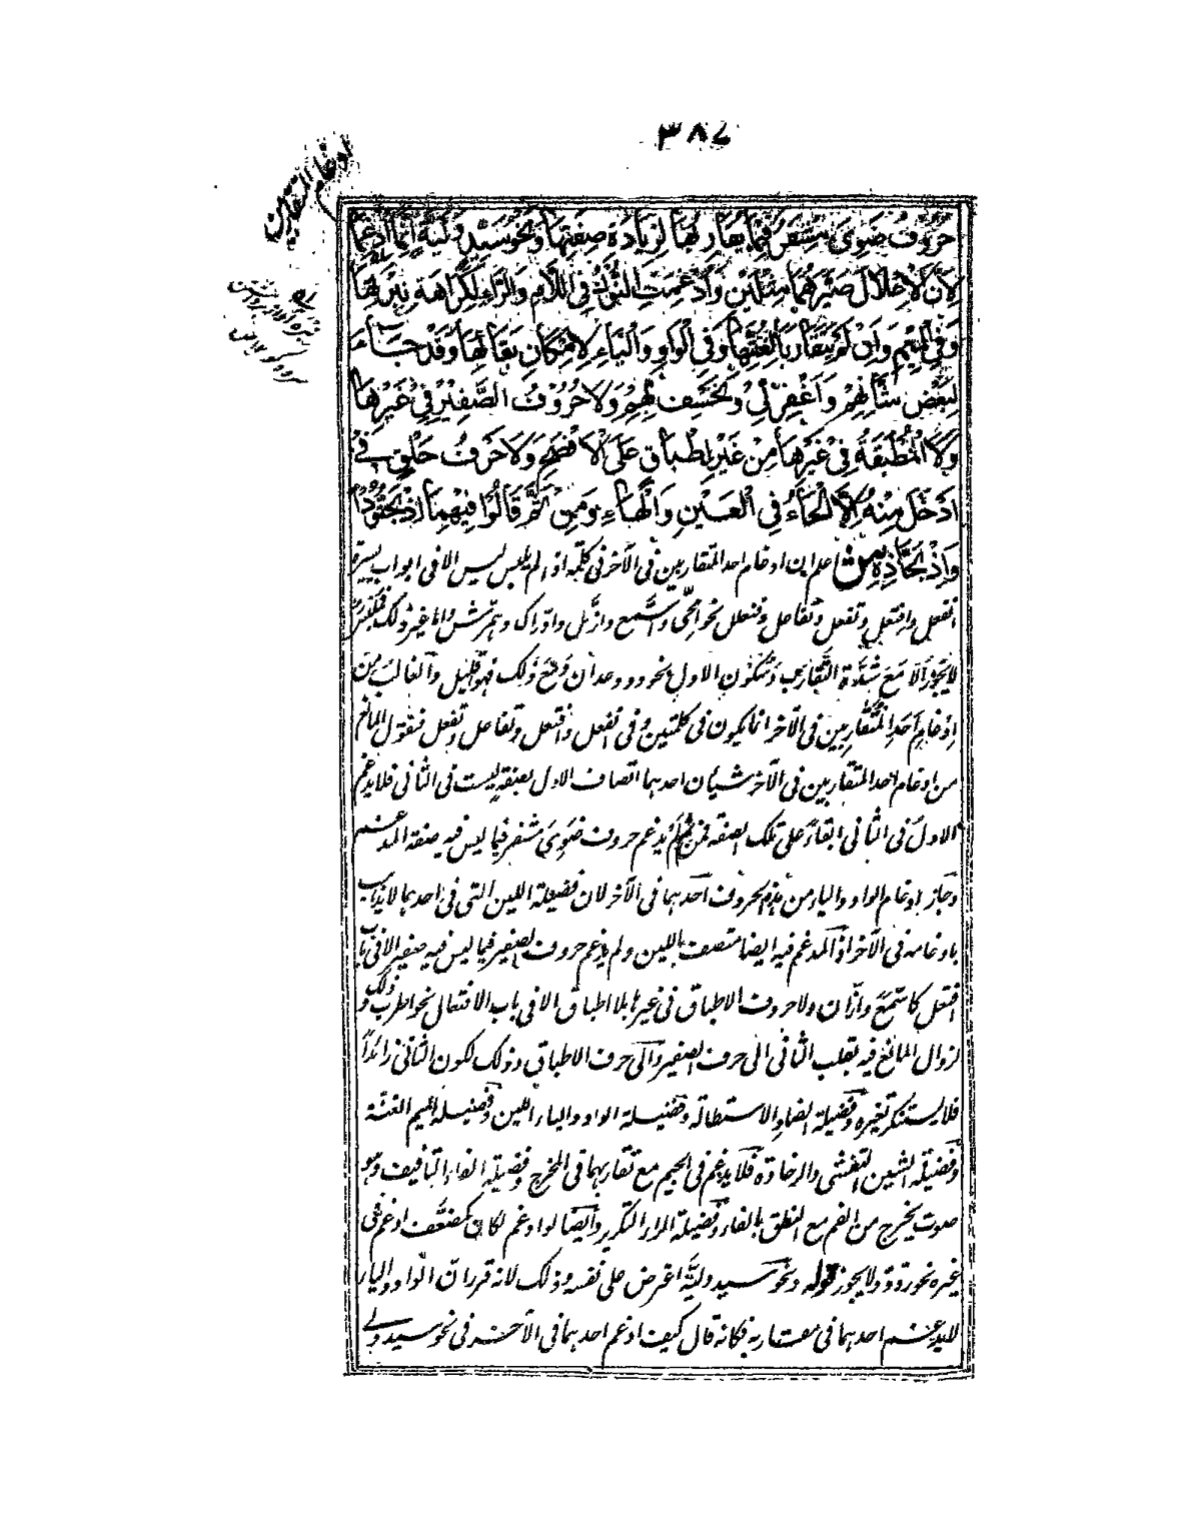 ٣٨٧
ادغام المتقاربين
حُرُوْفُ ضَوِيَ مِشْفَرٌ فِيْمَا يُقَارِبُهَا لِزِيَادَةِ صِفَتِهَا وَنَحْوُ سَيِّدٍ وَلَيَّةٍ اِنَّمَا اُدْغِمَا
لِاَنَّ الْاِعْلَالَ صَيَّرَهُمَا مِثْلَيْنِ وَاُدْغِمَتِ النُّوْنُ فِي اللَّامِ وَالرَّاءِ لِكَرَاهَةِ نَبْرَتِهَا
وَفِي الْمِيْمِ وَاِنْ لَمْ يَتَقَارَبَا لِغُنَّتِهَا وَفِي الْوَاوِ وَالْيَاءِ لِاِمْكَانِ بَقَائِهَا وَقَدْ جَاءَ
لِبَعْضِ شَّأْنِهِمْ وَاغْفِرْ لِّيْ وَنَخْسِفْ بِّهِمْ وَلَا حُرُوْفُ الصَّفِيْرِ فِيْ غَيْرِهَا
وَلَا الْمُطْبَقَةُ فِيْ غَيْرِهَا مِنْ غَيْرِ اِطْبَاقٍ عَلَى الْاَفْصَحِ وَلَا حَرْفُ حَلْقٍ فِيْ
اَدْخَلَ مِنْهُ اِلَّا الْحَاءُ فِي الْعَيْنِ وَالْهَاءِ وَمِنْ ثَمَّ قَالُوْا فِيْهِمَا اذْبَحَّتُوْدًا
وَاذْبَحَّاذِهٖ ش اعلم ان ادغام احد المتقاربين فى الآخر فى كلمة اذا لم يلبس ليس الا فى ابواب يسيرة
انفعل وافتعل وتفعل وتفاعل وفنعلل نحو امّحى واسّمع وازّمل وادّارك وهمّرش واما غير ذلك
لا يجوز الا مع شدة التقارب وسكون الاول نحو ود وعدان ومع ذلك فهو قليل والغالب من
ادغام احد المتقاربين فى الآخر انما يكون فى كلمتين وفى انفعل وافتعل وتفاعل وتفعل فنقول المانع
من ادغام احد المتقاربين فى الآخر شيئان احدهما اتصاف الاول بصفة ليست فى الثانى فلا يدغم
الاول فى الثانى ابقاءً على تلك الصفة فمن ثم لم يدغم حروف ضوى مشفر فيما ليس فيه صفة المدغم
وجاز ادغام الواو والياء من هذه الحروف احدهما فى الآخر لان فضيلة اللين التى فى احدهما لا يذهب
بادغامه فى الآخر اذ المدغم فيه ايضا متصف باللين ولم يدغم حروف الصفير فيما ليس فيه صفير الا فى باب
افتعل كاسّمع وازّان ولا حروف الاطباق فى غيرها بلا اطباق الا فى باب الافتعال نحو اطرب وذلك
لزوال المانع فيه بقلب الثانى الى حرف الصفير والى حرف الاطباق وذلك لكون الثانى زائداً
فلا يستنكر تغيره وفضيلة الضاد الاستطالة وفضيلة الواو والياء اللين وفضيلة الميم الغنة
وفضيلة الشين التفشى والرخاوة فلا يدغم فى الجيم مع تقاربهما فى المخرج وفضيلة الفاء التافيف وهو
صوت يخرج من الفم مع النطق بالفاء وفضيلة الراء التكرير وايضا لو ادغم لكان كمضعف ادغم فى
غيره نحو ردد ولا يجوز قوله ونحو سيد وليّة اعترض على نفسه وذلك لانه قرر ان الواو والياء
لا يدغم احدهما فى مقاربه فكانه قال كيف ادغم احدهما فى الآخر فى نحو سيد ولى